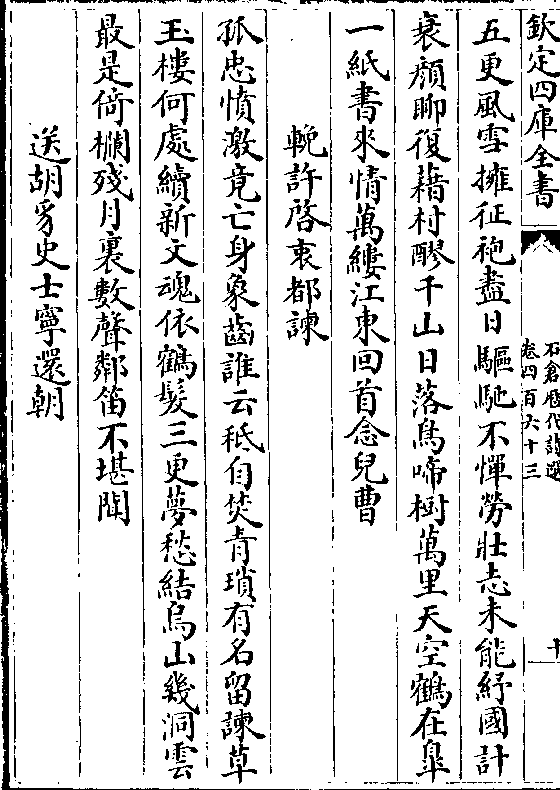 欽定四庫全書
石倉歷代詩選
卷四百六十三
十
五更風雪擁征袍盡日驅馳不憚勞壯志未能紓國計
衰顔聊復藉村醪千山日落鳥啼樹萬里天空鶴在臯
一紙書來情萬縷江東回首念兒曹
輓許啓衷都諫
孤忠憤激竟亡身象齒誰云秪自焚青瑣有名留諫草
玉樓何處續新文魂依鶴髮三更夢愁結烏山幾洞雲
最是倚欄殘月裏數聲鄰笛不堪聞
送胡豸史士寧還朝